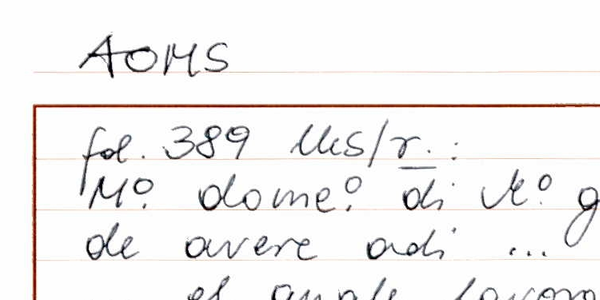 AOMS
fol. 389 lks/r. :
Mº domeº di Mº g
de avere adi ...
el quale lavoro